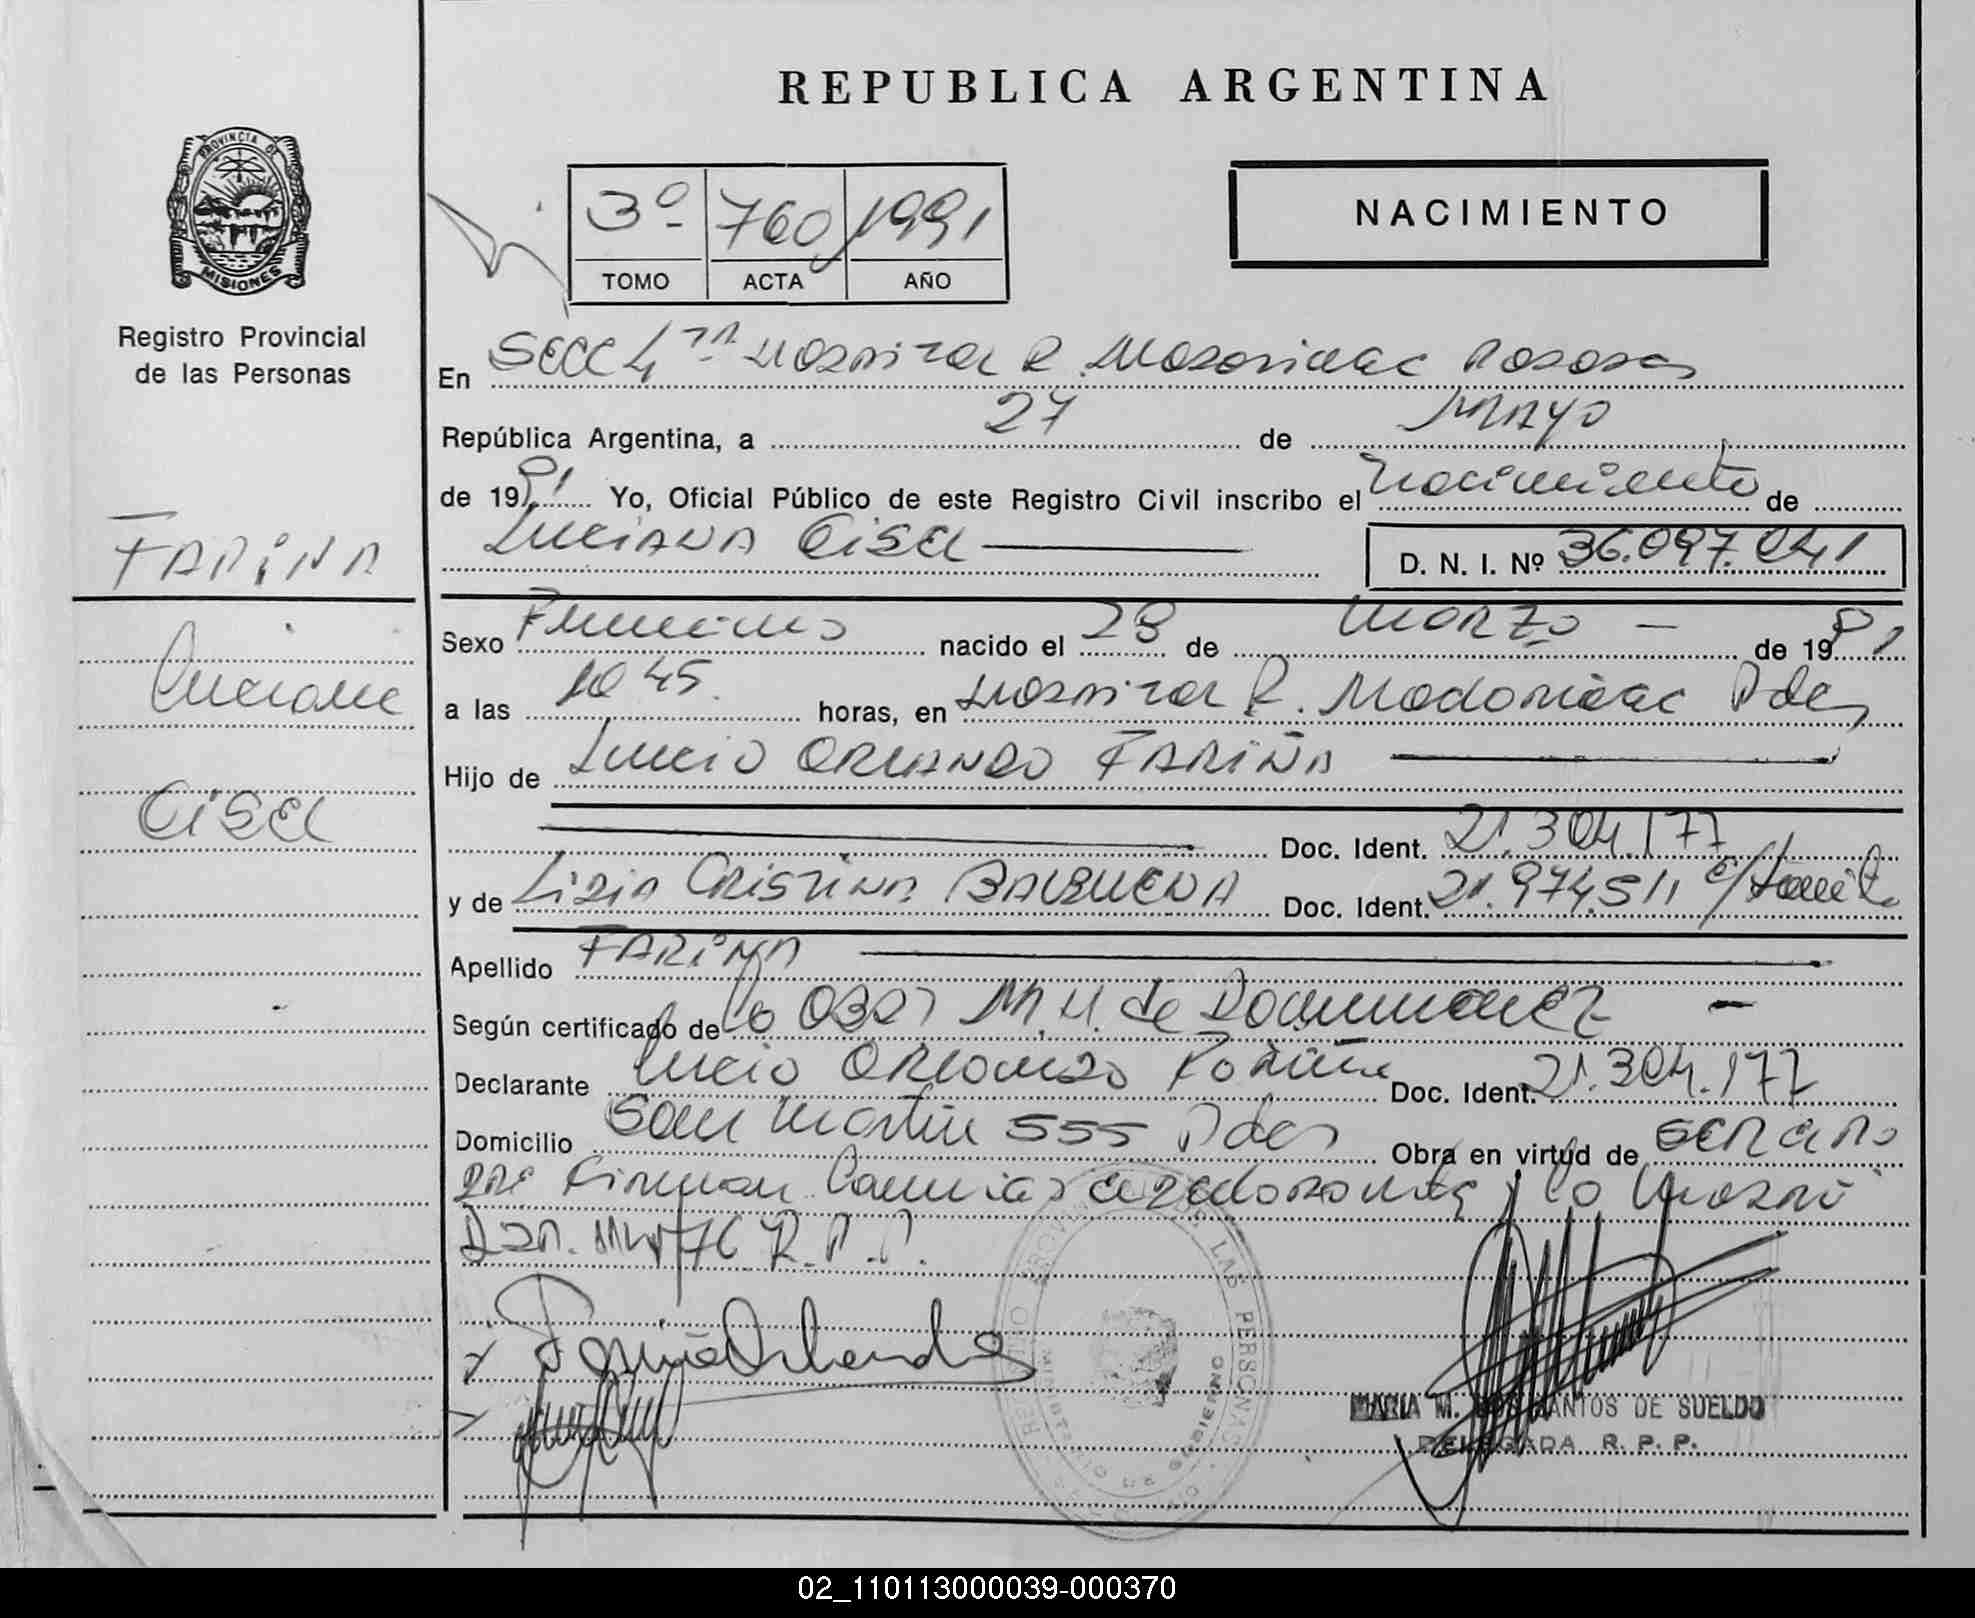 REPUBLICA ARGENTINA
PROVINCIA DE
MISIONES
Registro Provincial
de las Personas
3º 760 1991
TOMO ACTA AÑO
NACIMIENTO
En Secc 4ta Hospital R. Madariaga Posadas
República Argentina, a 27 de MAYO
de 1991 Yo, Oficial Público de este Registro Civil inscribo el Nacimiento de
LUCIANA GISEL
D. N. I. Nº 36.097.041
FARIÑA
Luciana
GISEL
Sexo Femenino nacido el 28 de Marzo - de 1991
a las 10 45 horas, en Hospital R. Madariaga Pdas
Hijo de Lucio ORLANDO FARIÑA
Doc. Ident. 21.304.177
y de Lidia CRISTINA BALBUENA Doc. Ident. 21.974.511 c/tramite
Apellido FARIÑA
Según certificado de la M.H. de
Declarante Lucio Orlando Fariña Doc. Ident. 21.304.177
Domicilio San Martin 555 Pdas Obra en virtud de
Firman la
R.P.P.
Fariña Orlando
REGISTRO PROVINCIAL DE LAS PERSONAS
GOBIERNO
MARIA M. DOS SANTOS DE SUELDO
DELEGADA R. P. P.
02_110113000039-000370